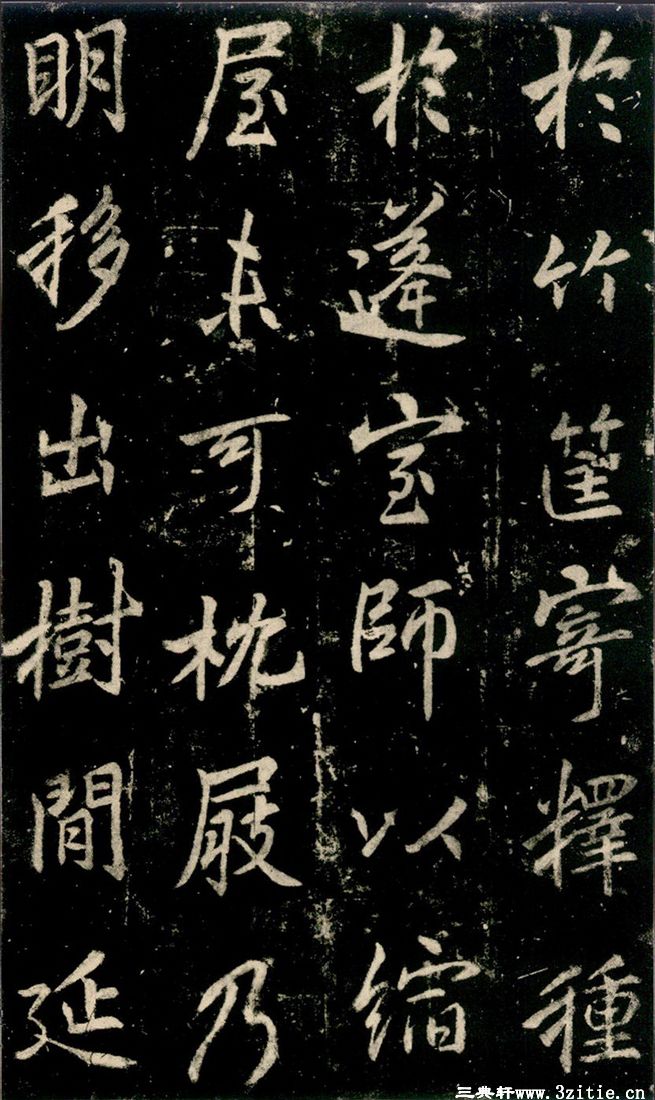 於竹筐寄釋種
於蓬室師以縮
屋未可枕屐乃
明移出樹間延
三典轩www.3zitie.cn